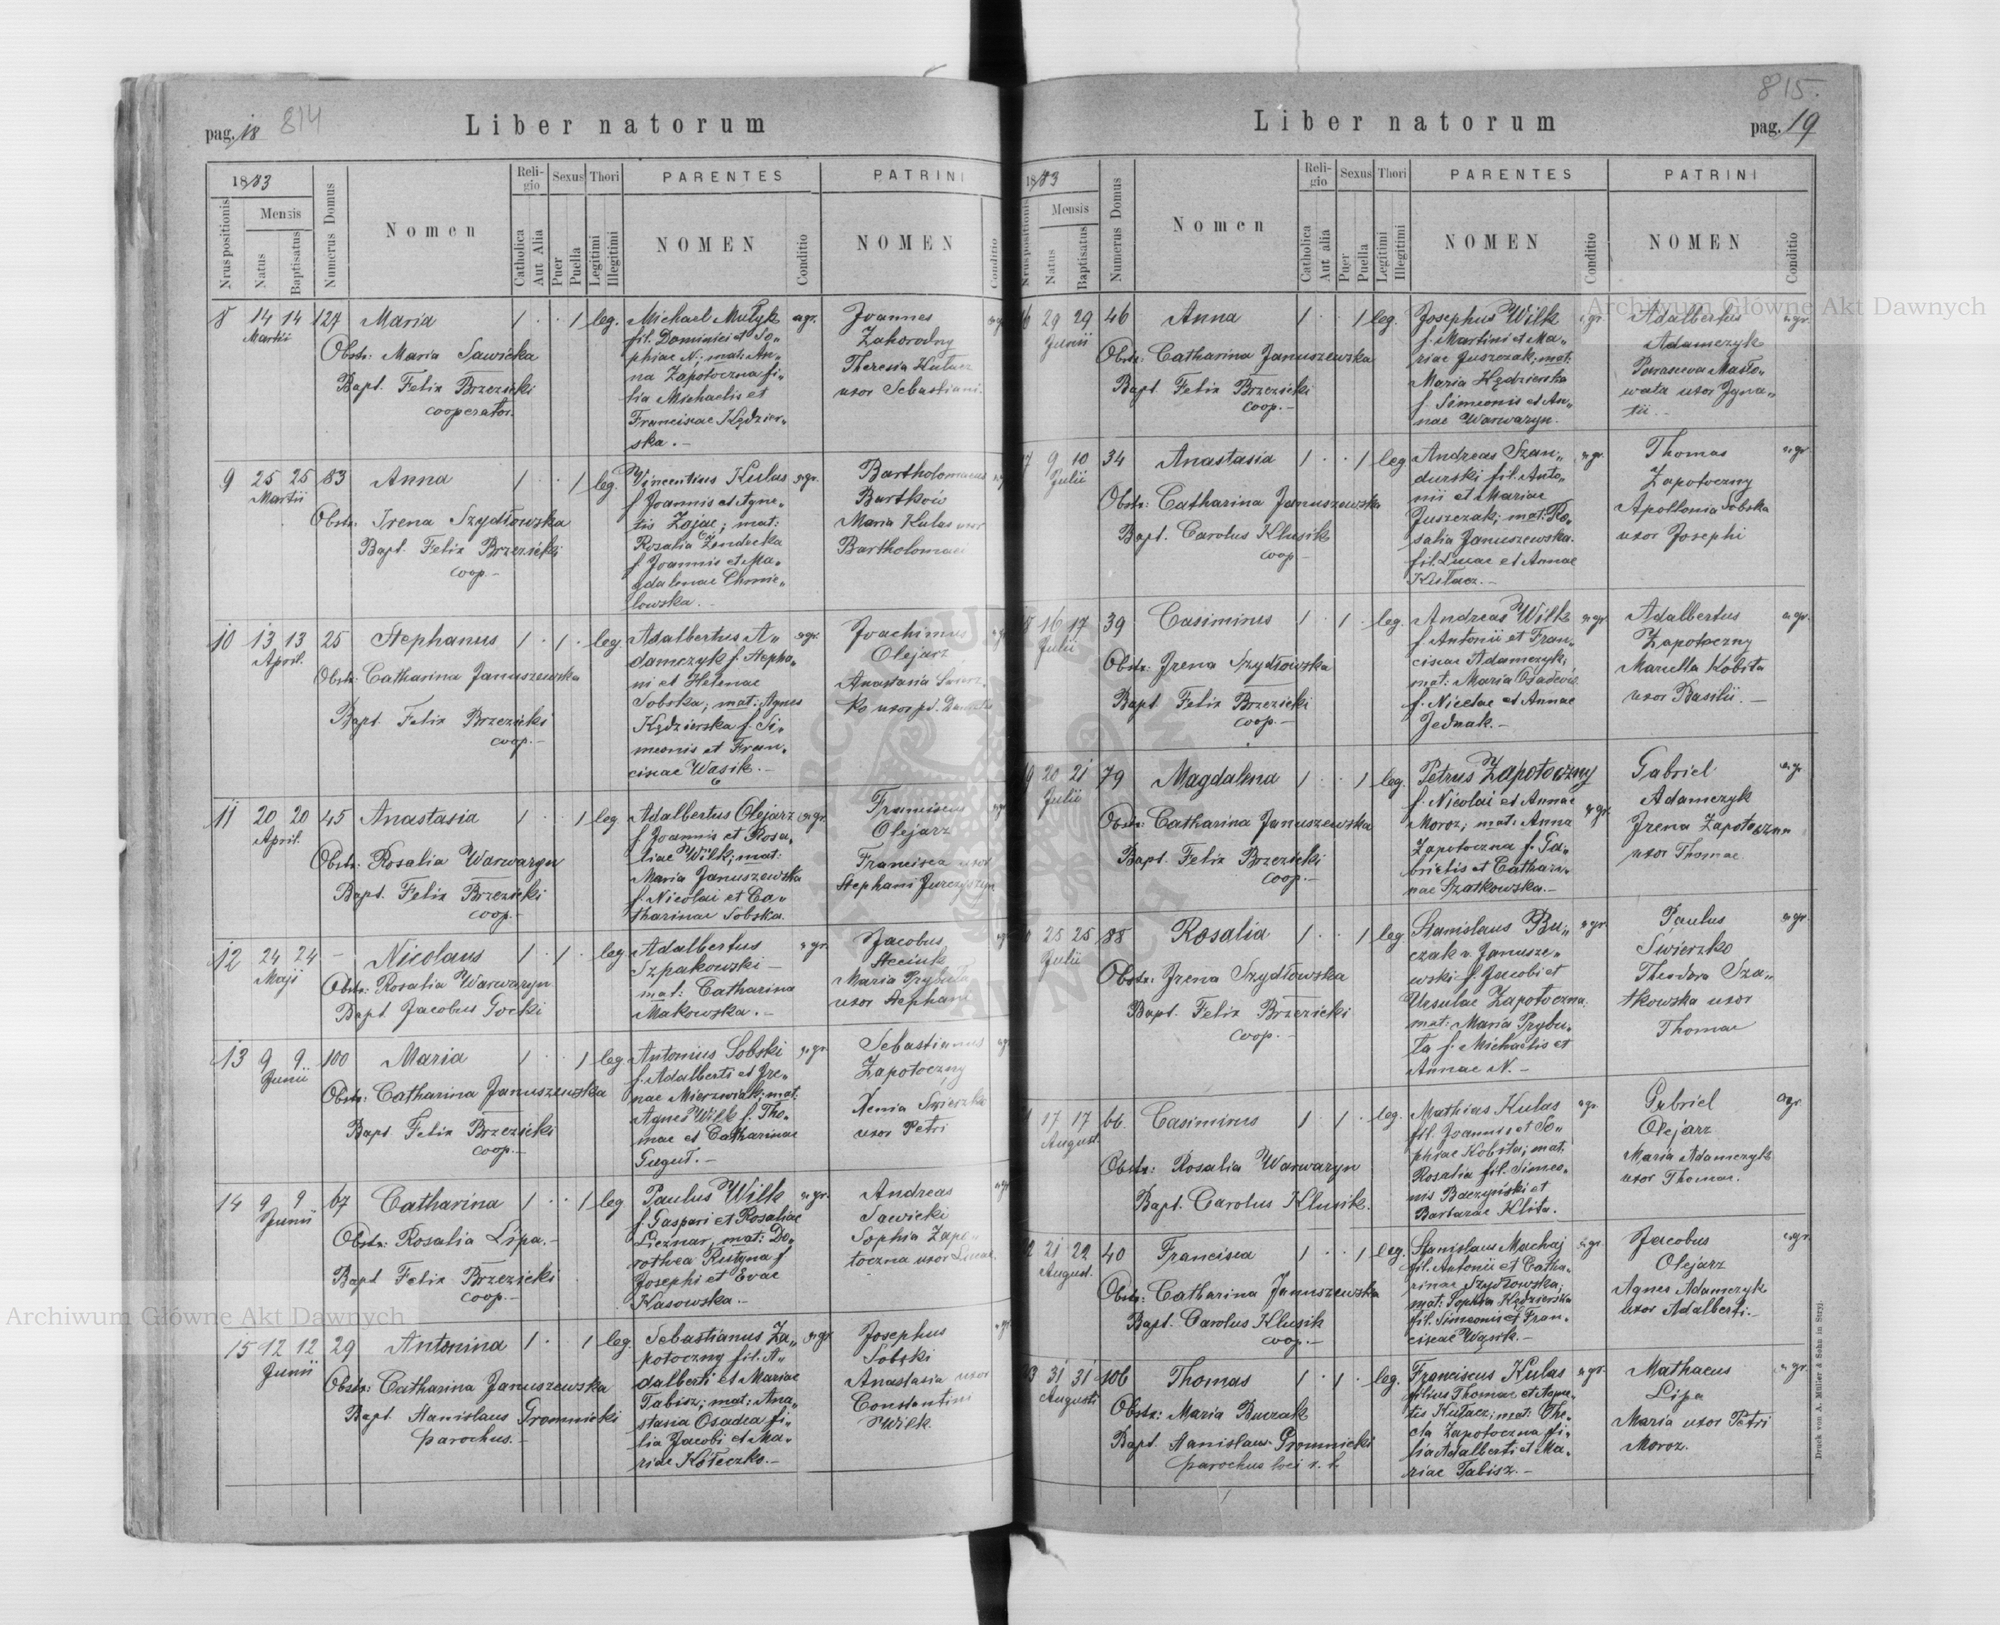 814
pag. 18
Liber natorum
1883
Nrus positionis
Mensis
Natus
Baptisatus
Numerus Domus
Nomen
Religio
Catholica
Aut Alia
Sexus
Puer
Puella
Thori
Legitimi
Illegitimi
PARENTES
NOMEN
Conditio
PATRINI
NOMEN
Conditio
8 14 14 127 Maria 1 · · 1 leg. Michael Mulyk agr. Joannes
Martii fil. Dominici et So„ Zahorodny
Obstr: Maria Sawicka phiae N; mat: An„ Theresia Kułacz
Bapt. Felix Brzezicki na Zapotoczna fi„ uxor Sebastiani.
cooperator. lia Michaelis et
Franciscae Kędzier„
ska. –
9 25 25 83 Anna 1 · · 1 leg. Vincentius Kulas agr. Bartholomaeus
Martii f Joannis et Agne„ Bartków
Obstr: Irena Szydłowska tis Zając; mat: Maria Kulas uxor
Bapt. Felix Brzezicki Rosalia Bartholomaei
coop. – f Joannis et Ma„
gdalenae Chmie„
lowska. –
10 13 13 25 Stephanus 1 · 1 · leg. Adalbertus A„ agr. Joachimus
April. damczyk f. Stepha„ Olejarz
Obstr: Catharina Januszewska ni et Helenae Anastasia
Bapt. Felix Brzezicki Sobska; mat: Agnes ko uxor
coop. – Kędzierska f. Si„
meonis et Fran„
ciscae Wąsik. –
11 20 20 45 Anastasia 1 · · 1 leg. Adalbertus Olejarz agr. Franciscus
April. f Joannis et Rosa„ Olejarz
Obstr: Rosalia Warwaryn liae Wilk; mat: Francisca uxor
Bapt. Felix Brzezicki Maria Januszewska Stephani
coop. – f. Nicolai et Ca„
tharinae Sobska.
12 24 24 – Nicolaus 1 · 1 · leg. Adalbertus agr. Jacobus
Maji Szpakowski – Steciuk
Obstr: Rosalia Warwaryn mat: Catharina Maria Prybuła
Bapt. Jacobus Gocki Makowska. – uxor Stephani
13 9 9 100 Maria 1 · · 1 leg. Antonius Sobski agr. Sebastianus
Junii f. Adalberti et Ire„ Zapotoczny
Obstr: Catharina Januszewska nae Mierzwiak; mat: Xenia Świerzko
Bapt. Felix Brzezicki Agnes Wilk f. Tho„ uxor Petri
coop. – mae et Catharinae
Gugut. –
14 9 9 67 Catharina 1 · · 1 leg. Paulus Wilk agr. Andreas
Junii f. Gaspari et Rosaliae Sawicki
Obstr: Rosalia Lipa. – Licznar, mat: Do„ Sophia Zapo„
Bapt Felix Brzezicki rothea Rustyna f toczna uxor Lucae
coop. – Josephi et Evae
Kasowska. –
15 12 12 29 Antonina 1 · · 1 leg. Sebastianus Za„ agr. Josephus
Junii potoczny fil. A„ Sobski
Obstr: Catharina Januszewska dalberti et Mariae Anastasia uxor
Bapt. Stanislaus Gromnicki Tabisz; mat: Ana„ Constantini
parochus. – stasia Osadca fi„ Wilk
lia Jacobi et Ma„
riae Koteczko. –
815.
Liber natorum
pag. 19
1883
Nrus positionis
Mensis
Natus
Baptisatus
Numerus Domus
Nomen
Religio
Catholica
Aut alia
Sexus
Puer
Puella
Thori
Legitimi
Illegitimi
PARENTES
NOMEN
Conditio
PATRINI
NOMEN
Conditio
6 29 29 46 Anna 1 · · 1 leg. Josephus Wilk agr. Adalbertus agr.
Junii f. Martini et Ma„ Adamczyk
Obstr: Catharina Januszewska riae Juszczak; mat: Parasceva Masło„
Bapt. Felix Brzezicki Maria Kędzierska wata uxor Igna„
coop. – f. Simeonis et An„ tii. –
nae Warwaryn.
7 9 10 34 Anastasia 1 · · 1 leg Andreas Szan„ agr. Thomas agr.
Julii durski fil. Anto„ Zapotoczny
Obstr: Catharina Januszewska nii et Mariae Apollonia Sobska
Bapt. Carolus Klusik Juszczak; mat: Ro„ uxor Josephi
coop. – salia Januszewska
fil. Lucae et Annae
Kułacz. –
8 16 17 39 Casimirus 1 · 1 · leg. Andreas Wilk agr. Adalbertus agr.
Julii f. Antonii et Fran„ Zapotoczny
Obstr: Irena Szydłowska ciscae Adamczyk; Marcella Kobita
Bapt. Felix Brzezicki mat: Maria uxor Basilii. –
coop. – f. Nicolae et Annae
Jednak. –
9 20 21 79 Magdalena 1 · · 1 leg. Petrus Zapotoczny Gabriel agr.
Julii f. Nicolai et Annae agr. Adamczyk
Obstr: Catharina Januszewska Moroz; mat: Anna Irena Zapotoczna
Bapt. Felix Brzezicki Zapotoczna f. Ga„ uxor Thomae
coop. – brielis et Cathari„
nae Szatkowska. –
25 25 88 Rosalia 1 · · 1 leg Stanislaus Bu„ agr. Paulus agr.
Julii czak v. Janusze„ Świerzko
Obstr: Irena Szydłowska wski f. Jacobi et Theodora Sza„
Bapt. Felix Brzezicki Ursulae Zapotoczna tkowska uxor
coop. – mat: Maria Prybu„ Thomae
ła f. Michaelis et
Annae N. –
1 17 17 66 Casimirus 1 · 1 · leg. Mathias Kulas agr. Gabriel agr.
August. fil. Joannis et So„ Olejarz
Obstr: Rosalia Warwaryn phiae Kobita; mat. Maria Adamczyk
Bapt. Carolus Klusik. Rosalia fil. Simeo„ uxor Thomae.
nis Baczyński et
Barbarae Klita.
2 21 22 40 Francisca 1 · · 1 leg. Stanislaus Machaj agr. Jacobus agr.
August. fil. Antonii et Catha„ Olejarz
Obstr: Catharina Januszewska rinae Szydłowska; Agnes Adamczyk
Bapt. Carolus Klusik mat: Sophia Kędzierska uxor Adalberti. –
coop. – fil. Simeonis et Fran„
ciscae Wąsik. –
3 31 31 106 Thomas 1 · 1 · leg. Franciscus Kulas agr. Mathaeus agr.
Augusti filius Thomae et Agne„ Lipa
Obstr: Maria Buczak tis Kułacz; mat: The„ Maria uxor Petri
Bapt. Stanislaus Gromnicki cla Zapotoczna fi„ Moroz.
parochus loci lia Adalberti et Ma„
riae Tabisz. –
Druck von A. Müller & Sohn in Stryj.
Archiwum Główne Akt Dawnych
Archiwum Główne Akt Dawnych